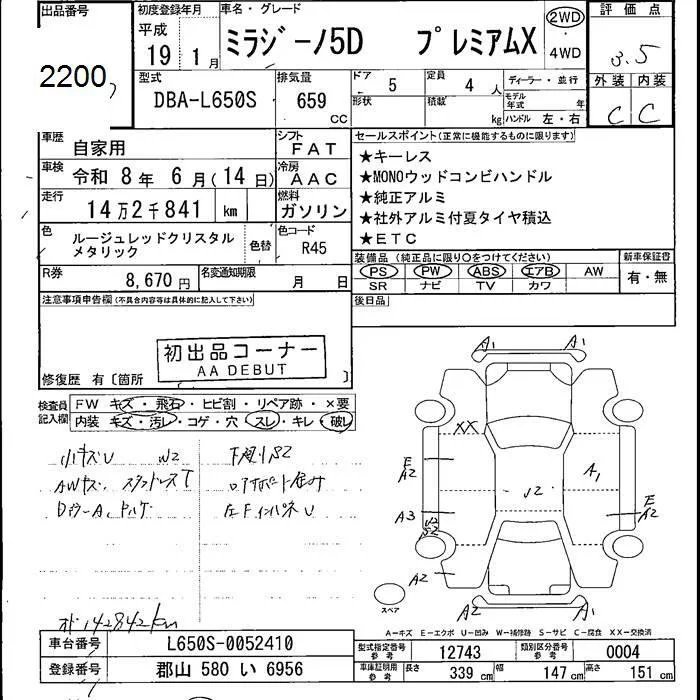 出品番号 初度登録年月 車名・グレード 評価点
2200
平成 19 1月 ミラジーノ5D プレミアムX 2WD・4WD 3.5
型式 排気量 ドア 5 定員 4人 ディーラー・並行 外装 内装
DBA-L650S 659 CC 形状 積載 kg モデル年式 年 ハンドル 左・右 C C
車歴 自家用 シフト FAT セールスポイント(正常に機能するものに限ります)
★キーレス
車検 令和 8年 6月(14日) 冷房 AAC ★MONOウッドコンビハンドル
★純正アルミ
走行 14万2千841 km 燃料 ガソリン ★社外アルミ付夏タイヤ積込
★ETC
色 ルージュレッドクリスタルメタリック 色替 色コード R45
装備品(純正品に限り○をつけてください) 新車保証書
PS PW ABS エアB AW 有・無
SR ナビ TV カワ
R券 8,670円 名変通知期限 月 日
後日品
注意事項申告欄(不具合内容等は具体的に記入して下さい)
初出品コーナー
AA DEBUT
修復歴 有〔箇所 〕
検査員記入欄 FW キズ・飛石・ヒビ割・リペア跡・×要
内装 キズ・汚レ・コゲ・穴・スレ・キレ・破レ
小キズU W2
A1 A1
XX
E A2
A1
A3
E A2
A2
A2 A1
スペア
142842km
A-キズ E-エクボ U-凹み W-補修跡 S-サビ C-腐食 XX-交換済
車台番号 L650S-0052410
型式指定番号 参考 12743 類別区分番号 参考 0004
登録番号 郡山 580 い 6956
車庫証明用 参考 長さ 339 cm 幅 147 cm 高さ 151 cm